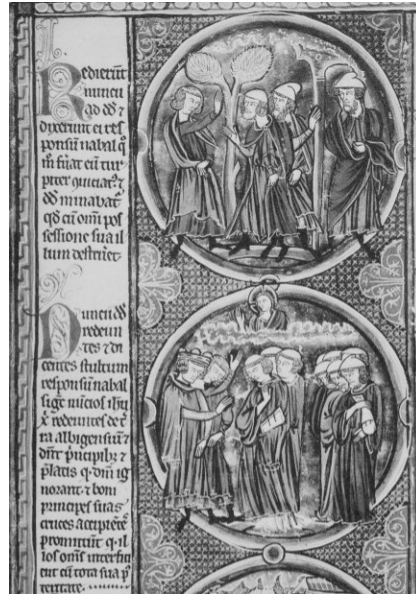 Redierūt
nuncii
ad dd̄ ⁊
dixerunt ei res
ponsū nabal q̄
fuat eū tur
piter
dd̄ minabat᷑
qd̄ eū om̄i pos
sessione sua il
lum destruet
Nuncii dd̄
redeun
tes ⁊ di
centes stultum
responsū nabal
sigt̄ nūcios ihū
xp̄ redeuntes de t̄
ra albigensiū ⁊
dn̄t p̄ncipib; ⁊
p̄latis q dn̄m ig
norant ⁊ boni
principes suas
cruces accipiētes
promittūt q il
los om̄s interfici
ent cū tota sua p̄